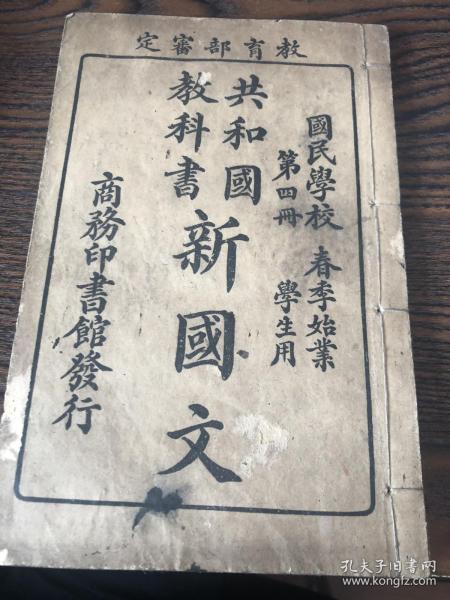 教育部審定
國民學校 春季始業
第四冊 學生用
共和國
教科書
新國文
商務印書館發行
孔夫子旧書网
www.kongfz.com